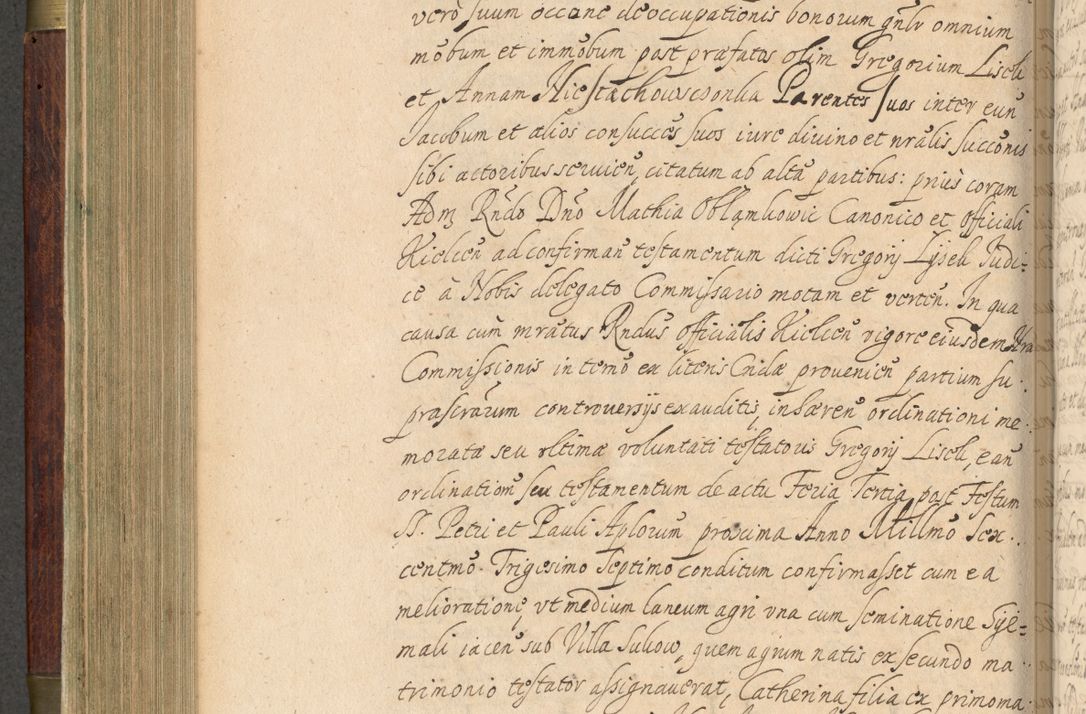 vero suum occane de occupationis bonorum gnlr omnium
mobum et immobum post præfatos olim Gregorium Lisek
et Annam Niestachowsczonka Parentes suos inter eun
Jacobum et alios consucces suos iure diuino et nralis succonis
sibi actoribus seruien, citatum ab alta partibus: prius coram
Adm Rndo Dno Mathia Obłąmkowic Canonico et officiali
Kielcen ad confirman testamentum dicti Gregorij Lysek Judi=
ce à Nobis delegato Commissario motam et verten. In qua
causa cum mratus Rndus officialis Kielcen vigore eiusdem Nra
Commissionis in termo ex literis Cridæ prouenien partium su
prascraum controuersijs exauditis, inhæren ordinationi me
moratæ seu vltimæ voluntati testatoris Gregorij Lisek, ean
ordination seu testamentum de actu Feria Tertia post Festum
SS. Petri et Pauli Aplorum proxima Anno Millmo Sex
centmo Trigesimo Septimo conditum confirmasset cum ea
melioratione, vt medium laneum agri vna cum seminatione Sye=
mali iacen sub Villa Sukow, quem agrum natis ex secundo ma
trimonio testator assignauerat, Catherina filia ex primo ma